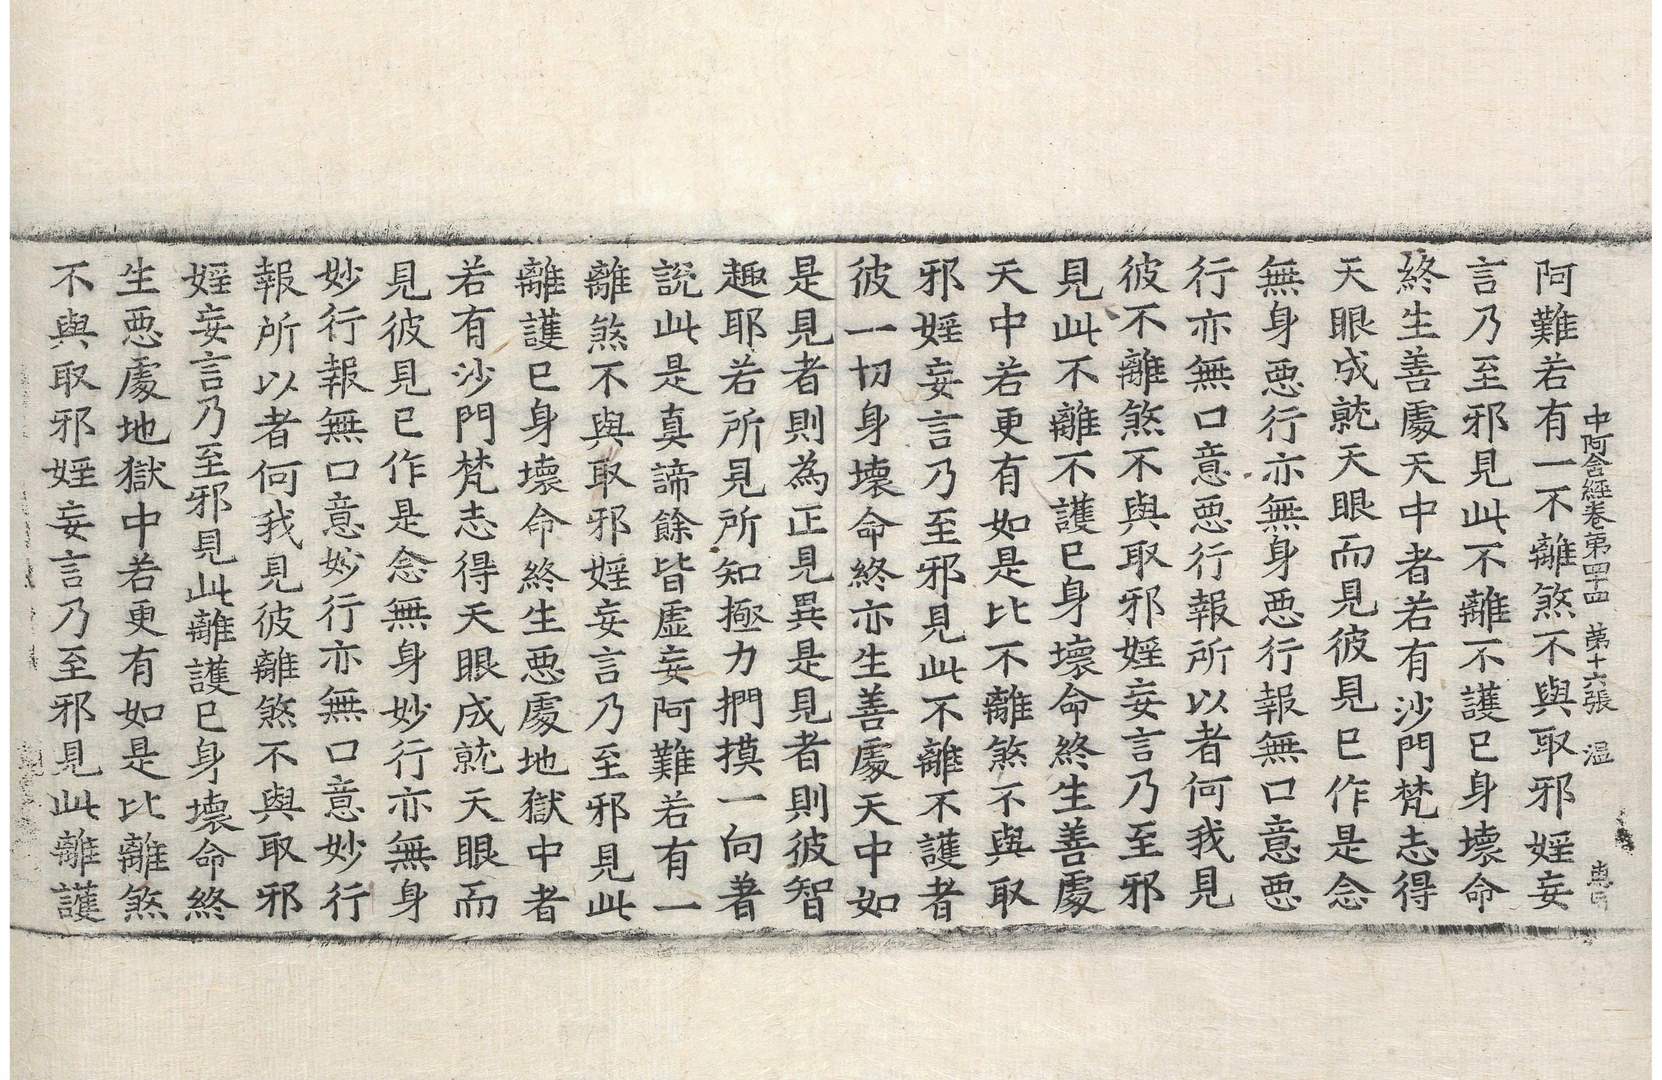 中阿含經卷第四十四 第十六張 温
阿難若有一不離煞不與取邪婬妄
言乃至邪見此不離不護已身壞命
終生善處天中者若有沙門梵志得
天眼成就天眼而見彼見已作是念
無身惡行亦無身惡行報無口意惡
行亦無口意惡行報所以者何我見
彼不離煞不與取邪婬妄言乃至邪
見此不離不護已身壞命終生善處
天中若更有如是比不離煞不與取
邪婬妄言乃至邪見此不離不護者
彼一切身壞命終亦生善處天中如
是見者則為正見異是見者則彼智
趣耶若所見所知極力捫摸一向著
說此是真諦餘皆虛妄阿難若有一
離煞不與取邪婬妄言乃至邪見此
離護已身壞命終生惡處地獄中者
若有沙門梵志得天眼成就天眼而
見彼見已作是念無身妙行亦無身
妙行報無口意妙行亦無口意妙行
報所以者何我見彼離煞不與取邪
婬妄言乃至邪見此離護已身壞命終
生惡處地獄中若更有如是比離煞
不與取邪婬妄言乃至邪見此離護